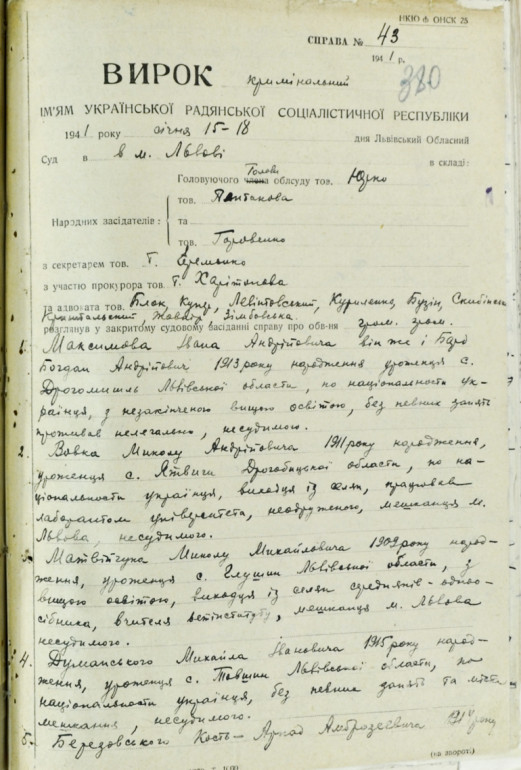 НКЮ ф ОНСК 25
СПРАВА № 43
1941 р.
380
ВИРОК кримінальний
ІМ'ЯМ УКРАЇНСЬКОЇ РАДЯНСЬКОЇ СОЦІАЛІСТИЧНОЇ РЕСПУБЛІКИ
1941 року січня 15-18 дня Львівський Обласний
Суд в в м. Львові в складі:
Голови
Головуючого члена облсуду тов. Юдко
тов.
Народних засідателів: та
тов. Горовенко
з секретарем тов. т. Єременко
з участю прокурора тов. т. Харітонова
та адвоката тов. Блок, Левінтовський, Куриленка, Бузін,
Зімбовська.
розглянув у закритому судовому васіданні справу про обв-ня гром. гром.
1. Максимова Івана Андрійовича він же і Бард
Богдан Андрійович 1913 року народження уроженця с.
Дрогомишль Львівської области, по національности ук-
раїнця, з незакінченою вищою освітою, без певних занять
проживав нелегально, несудимого.
2. Вовка Миколу Андрійовича 1911 року народження,
уроженця с. Ятвиги Дрогобицької области, по на-
ціональности українця, виходця із селян, працював
лаборантом університета, неодруженого, мешканця м.
Львова, несудимого.
3. Матвійчука Миколу Михайловича 1909 року народ-
ження, уроженця с. Глушин Львівської области, з
вищою освітою, виходця із селян середняків-одноо-
сібника, вчителя ветінституту, мешканця м. Львова
несудимого.
4. Думанського Михайла Івановича 1915 року народ-
ження, уроженця с. Товщин Львівської области, по
національности українця, без певних занять та міста
мешкання, несудимого.
5. Березовського Кость-Аркад Амброзієвича року
(на звороті)